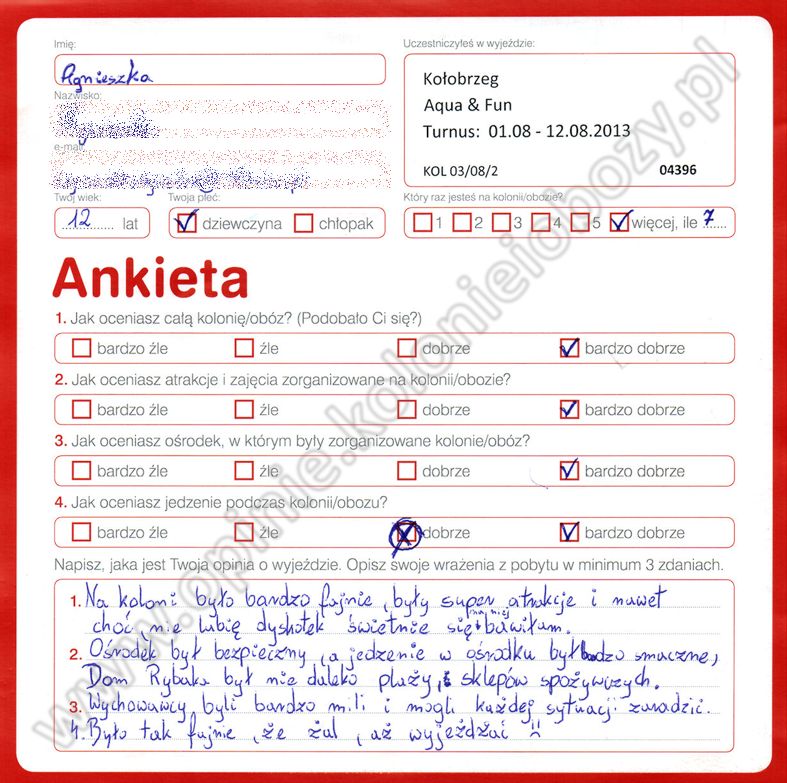 Imię:
Agnieszka
Nazwisko:
e-mail:
Twój wiek:
12 lat
Twoja płeć:
dziewczyna chłopak
Uczestniczyłeś w wyjeździe:
Kołobrzeg
Aqua & Fun
Turnus: 01.08 - 12.08.2013
KOL 03/08/2 04396
Który raz jesteś na kolonii/obozie?
1 2 3 4 5 więcej, ile 7
Ankieta
1. Jak oceniasz całą kolonię/obóz? (Podobało Ci się?)
bardzo źle źle dobrze bardzo dobrze
2. Jak oceniasz atrakcje i zajęcia zorganizowane na kolonii/obozie?
bardzo źle źle dobrze bardzo dobrze
3. Jak oceniasz ośrodek, w którym były zorganizowane kolonie/obóz?
bardzo źle źle dobrze bardzo dobrze
4. Jak oceniasz jedzenie podczas kolonii/obozu?
bardzo źle źle dobrze bardzo dobrze
Napisz, jaka jest Twoja opinia o wyjeździe. Opisz swoje wrażenia z pobytu w minimum 3 zdaniach.
1. Na koloni było bardzo fajnie, były super atrakcje i nawet
choć, nie lubię dyskotek świetnie się na niej bawiłam.
2. Ośrodek był bezpieczny, a jedzenie w ośrodku było bardzo smaczne,
Dom Rybaka był nie daleko plaży, i sklepów spożywczych.
3. Wychowawcy byli bardzo mili i mogli każdej sytuacji zaradzić.
4. Było tak fajnie, że żal, aż wyjeżdżać
www.opinie.kolonieiobozy.pl